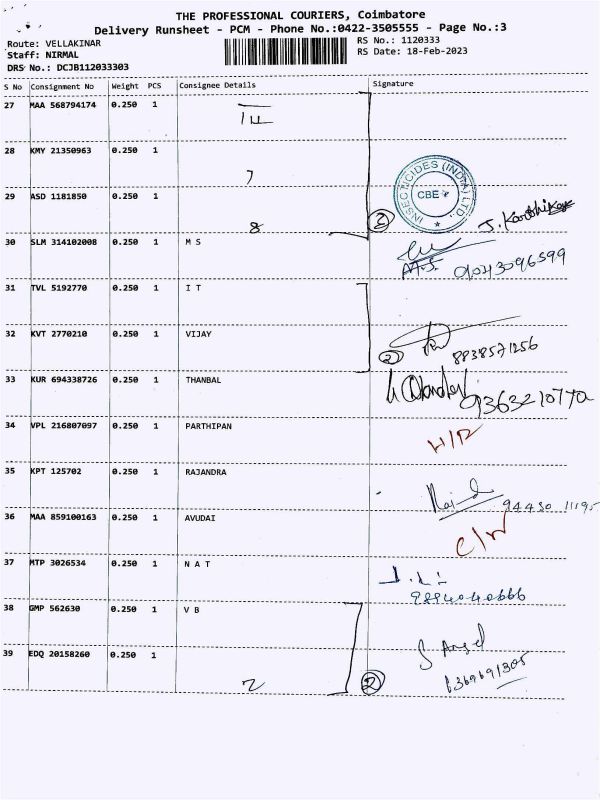 THE PROFESSIONAL COURIERS, Coimbatore
Delivery Runsheet - PCM - Phone No.:0422-3505555 - Page No.:3
Route: VELLAKINAR RS No.: 1120333
Staff: NIRMAL RS Date: 18-Feb-2023
DRS No.: DCJB112033303
S No Consignment No Weight PCS Consignee Details Signature
27 MAA 568794174 0.250 1
28 KMY 21350963 0.250 1
7
INSECTICIDES (INDIA) LTD.
CBE
29 ASD 1181850 0.250 1
8 3 J. Karthikey
30 SLM 314102008 0.250 1 M S
9043096599
31 TVL 5192770 0.250 1 I T
32 KVT 2770210 0.250 1 VIJAY
2 8838571256
33 KUR 694338726 0.250 1 THANBAL
34 VPL 216807097 0.250 1 PARTHIPAN
35 KPT 125702 0.250 1 RAJANDRA
94430 11195
36 MAA 859100163 0.250 1 AVUDAI
37 MTP 3026534 0.250 1 N A T
38 GMP 562630 0.250 1 V B
39 EDQ 20158260 0.250 1
2 2 6369691305